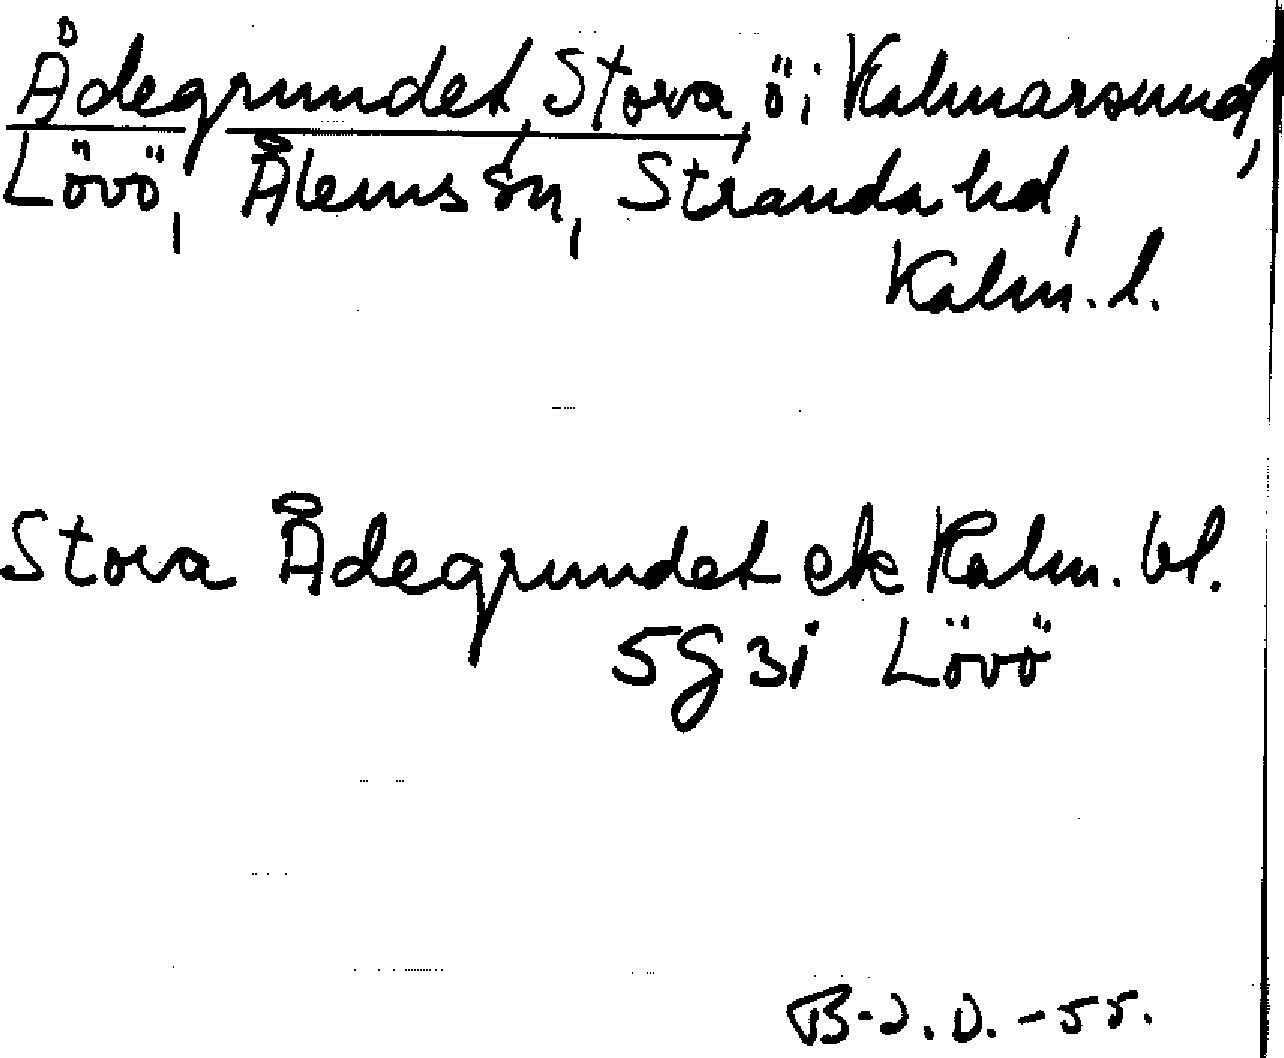 Ådegrundet, Stora, ö i Kalmarsund,
Lövö, Ålems sn, Stranda hd,
Kalm. l.
Stora Ådegrundet ek Kalm. bl.
5G 3i Lövö
B-J. D. -55.